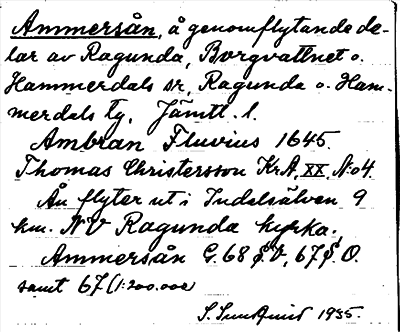 Ammersån, å genomflytande de-
lar av Ragunda, Borgvattnet o.
Hammerdals sr, Ragunda o. Ham-
merdals tg. Jämtl. l.
Ambran Fluvius 1645.
Thomas Christersson KrA, XX, N:o 4.
Ån flyter ut i Indalsälven 9
km. NV Ragunda kyrka.
Ammersån G. 68 S.V, 67 S.O.
samt 67 (1:200.000)
1935.